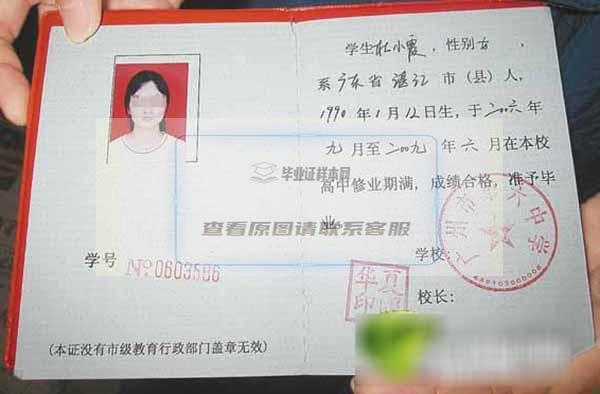 学生杜小霞，性别女，
系广东省湛江市（县）人，
1990年1月12日生，于二00六年
九月至二00九年六月在本校
高中修业期满，成绩合格，准予毕
业
毕业证样本网
查看原图请联系客服
学号
No 0603586
学校：
校长：
(本证没有市级教育行政部门盖章无效)